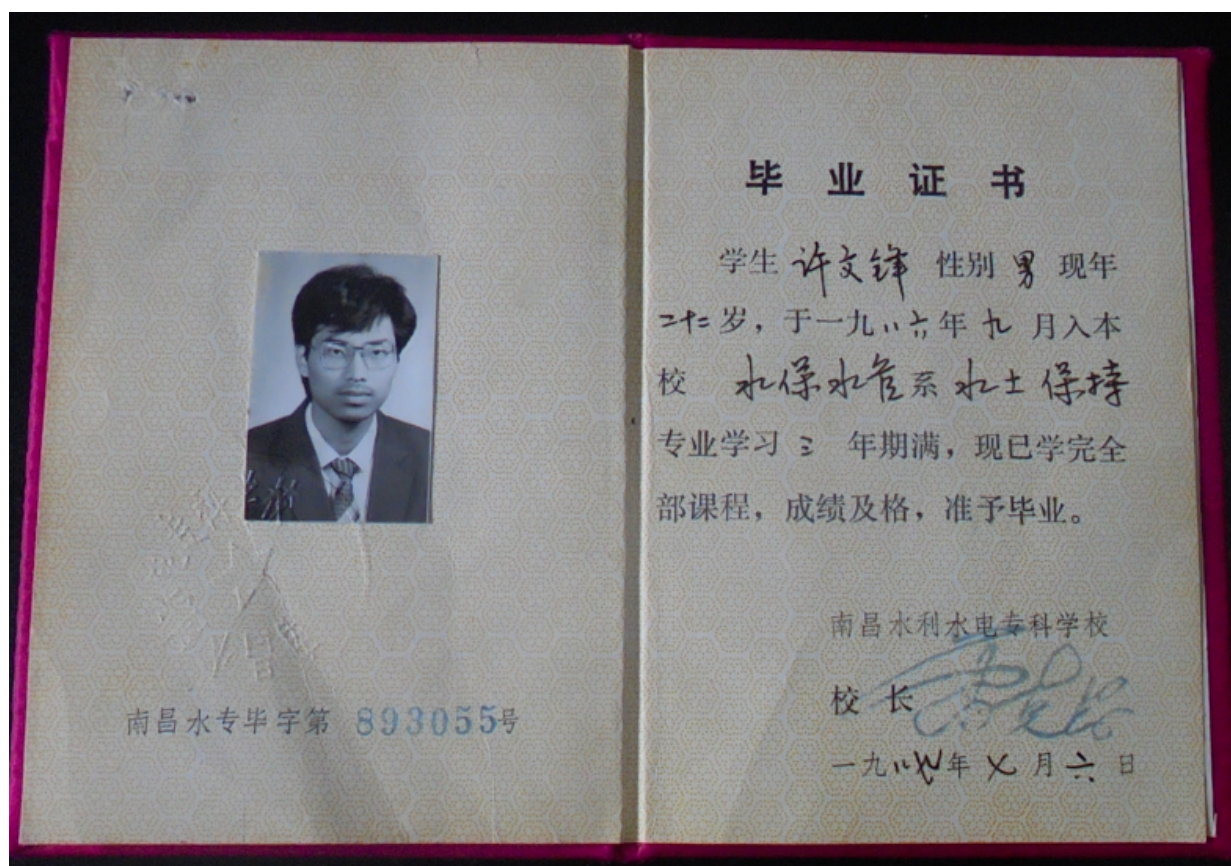 南昌水专毕字第 893055号
毕业证书
学生 许文锋 性别 男 现年
二十二岁，于一九八六年九月入本
校 水保水资系 水土保持
专业学习 三 年期满，现已学完全
部课程，成绩及格，准予毕业。
南昌水利水电专科学校
校长
一九八九年 七 月 六 日